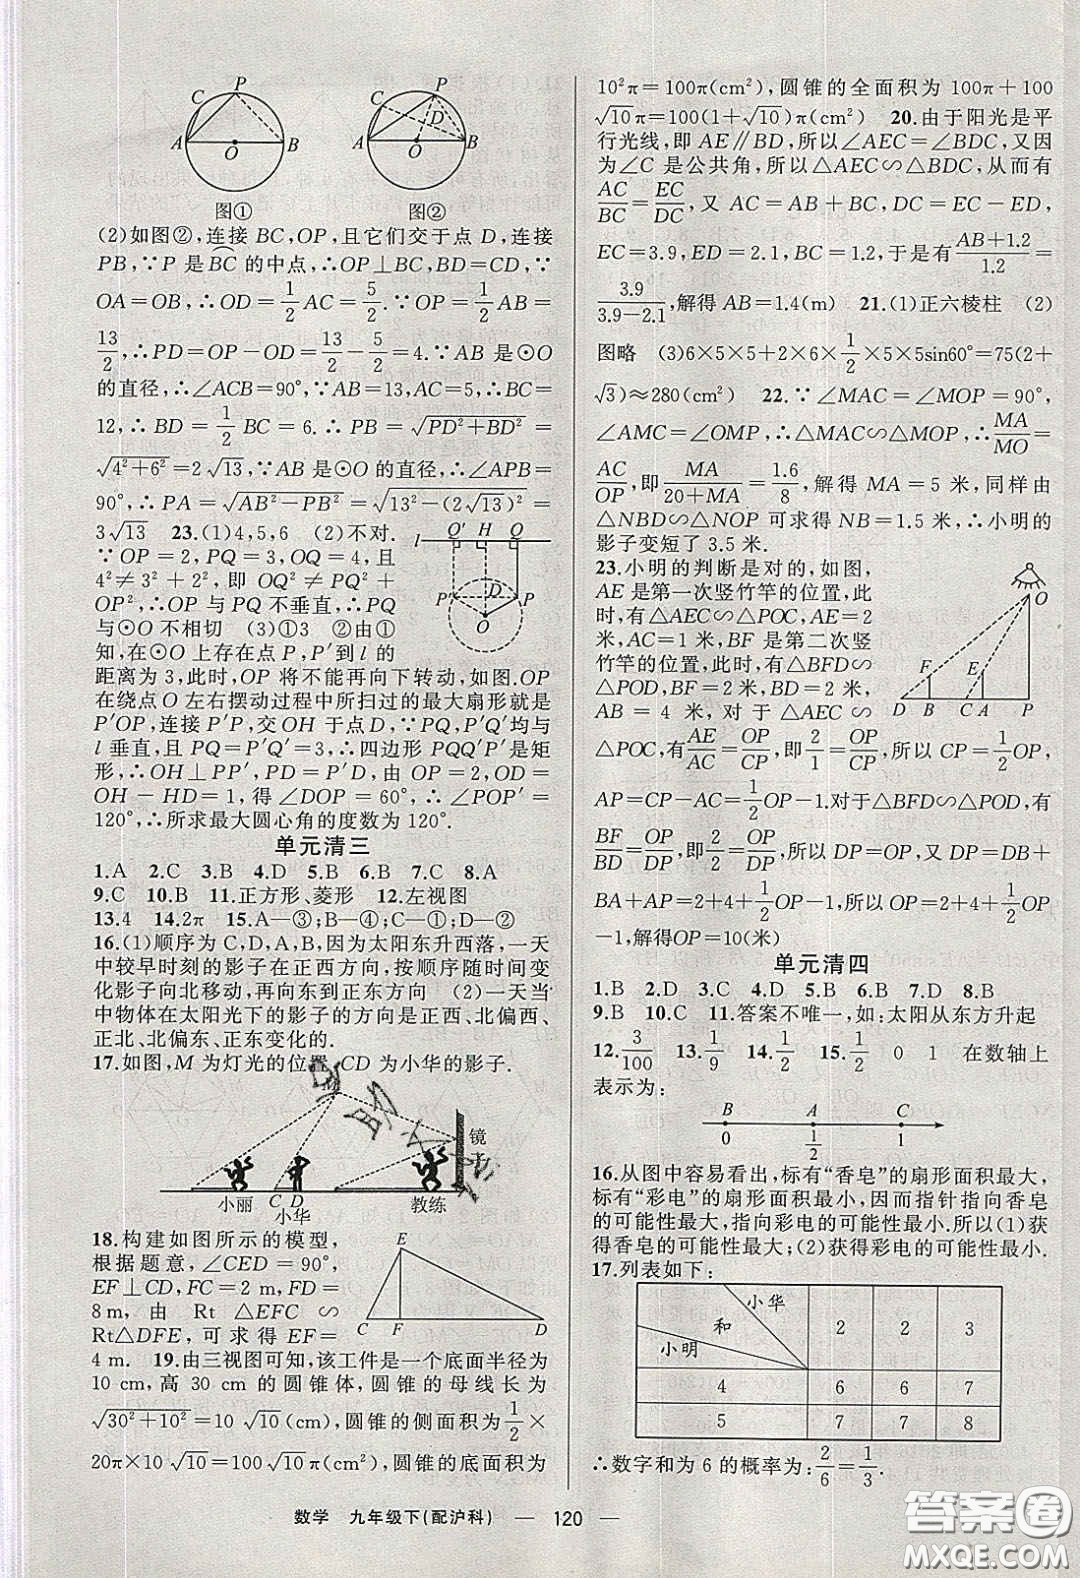 P
C
A
O
B
图①
P
C
D
A
O
B
图②
(2)如图②,连接 BC,OP,且它们交于点 D,连接
PB,∵P 是BC⌒的中点,∴OP⊥BC,BD=CD,∵
OA=OB,∴OD=1/2AC=5/2.∵OP=1/2AB=
13/2,∴PD=OP-OD=13/2-5/2=4.∵AB 是⊙O
的直径,∴∠ACB=90°,∵AB=13,AC=5,∴BC=
12,∴BD=1/2BC=6.∴PB=√(PD²+BD²)=
√(4²+6²)=2√13,∵AB 是⊙O 的直径,∴∠APB=
90°,∴PA=√(AB²-PB²)=√(13²-(2√13)²)=
3√13 23.(1)4,5,6 (2)不对.
∵OP=2,PQ=3,OQ=4,且
4²≠3²+2²,即 OQ²≠PQ²+
OP²,∴OP 与 PQ 不垂直,∴PQ
与⊙O 不相切 (3)①3 ②由①
知,在⊙O 上存在点 P,P′到 l 的
距离为 3,此时,OP 将不能再向下转动,如图.OP
在绕点 O 左右摆动过程中所扫过的最大扇形就是
P′OP,连接 P′P,交 OH 于点 D,∵PQ,P′Q′均与
l 垂直,且 PQ=P′Q′=3,∴四边形 PQQ′P′是矩
形,∴OH⊥PP′,PD=P′D,由 OP=2,OD=
OH-HD=1,得∠DOP=60°,∴∠POP′=
120°,∴所求最大圆心角的度数为 120°.
l
Q′ H Q
P′
D
P
O
单元清三
1.A 2.C 3.B 4.D 5.B 6.B 7.C 8.A
9.C 10.B 11.正方形、菱形 12.左视图
13.4 14.2π 15.A—③;B—④;C—①;D—②
16.(1)顺序为 C,D,A,B,因为太阳东升西落,一天
中较早时刻的影子在正西方向,按顺序随时间变
化影子向北移动,再向东到正东方向 (2)一天当
中物体在太阳光下的影子的方向是正西、北偏西、
正北、北偏东、正东变化的.
17.如图,M 为灯光的位置,CD 为小华的影子.
M
镜子
小丽
C D
小华
教练
18.构建如图所示的模型,
根据题意,∠CED=90°,
EF⊥CD,FC=2 m,FD=
8 m,由 Rt△EFC∽
Rt△DFE,可求得 EF=
4 m. 19.由三视图可知,该工件是一个底面半径为
10 cm,高 30 cm 的圆锥体,圆锥的母线长为
√(30²+10²)=10√10(cm),圆锥的侧面积为1/2×
20π×10√10=100√10π(cm²),圆锥的底面积为
E
C F D
10²π=100π(cm²),圆锥的全面积为 100π+100
√10π=100(1+√10)π(cm²) 20.由于阳光是平
行光线,即 AE∥BD,所以∠AEC=∠BDC,又因
为∠C 是公共角,所以△AEC∽△BDC,从而有
AC/BC=EC/DC,又 AC=AB+BC,DC=EC-ED,
EC=3.9,ED=2.1,BC=1.2,于是有(AB+1.2)/1.2=
3.9/(3.9-2.1),解得 AB=1.4(m) 21.(1)正六棱柱 (2)
图略 (3)6×5×5+2×6×1/2×5×5sin60°=75(2+
√3)≈280(cm²) 22.∵∠MAC=∠MOP=90°,
∠AMC=∠OMP,∴△MAC∽△MOP,∴MA/MO=
AC/OP,即MA/(20+MA)=1.6/8,解得 MA=5 米,同样由
△NBD∽△NOP 可求得 NB=1.5 米,∴小明的
影子变短了 3.5 米.
23.小明的判断是对的,如图,
AE 是第一次竖竹竿的位置,此
时,有△AEC∽△POC,AE=2
米,AC=1 米,BF 是第二次竖
竹竿的位置,此时,有△BFD∽
△POD,BF=2 米,BD=2 米,
AB=4 米,对于△AEC∽
△POC,有AE/AC=OP/CP,即2/1=OP/CP,所以 CP=1/2OP,
AP=CP-AC=1/2OP-1.对于△BFD∽△POD,有
BF/BD=OP/DP,即2/2=OP/DP,所以 DP=OP,又 DP=DB+
BA+AP=2+4+1/2OP-1,所以 OP=2+4+1/2OP
-1,解得OP=10(米)
O
F E
D B C A P
单元清四
1.B 2.D 3.C 4.D 5.B 6.B 7.D 8.B
9.B 10.C 11.答案不唯一,如:太阳从东方升起
12.3/100 13.1/9 14.1/2 15.1/2 0 1 在数轴上
表示为:
B A C
0 1/2 1
16.从图中容易看出,标有“香皂”的扇形面积最大,
标有“彩电”的扇形面积最小,因而指针指向香皂
的可能性最大,指向彩电的可能性最小.所以(1)获
得香皂的可能性最大;(2)获得彩电的可能性最小.
17.列表如下:
小华 和 小明 2 2 3
4 6 6 7
5 7 7 8
∴数字和为 6 的概率为:2/6=1/3.
数学 九年级下(配沪科) — 120 —
答案圈
MXQE.COM